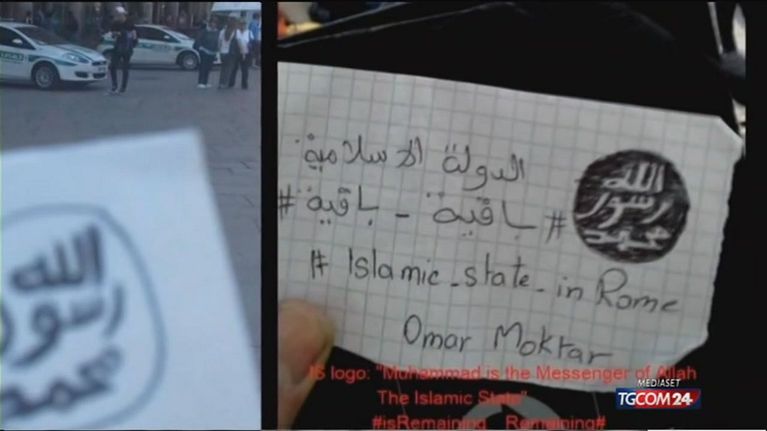 الله
رسول
محمد
الدولة الاسلامية
# باقية - باقية #
الله
رسول
محمد
# Islamic-state-in Rome
Omar Moktar
IS logo: "Muhammad is the Messenger of Allah
The Islamic State"
#isRemaining__Remaining#
MEDIASET
TGCOM24